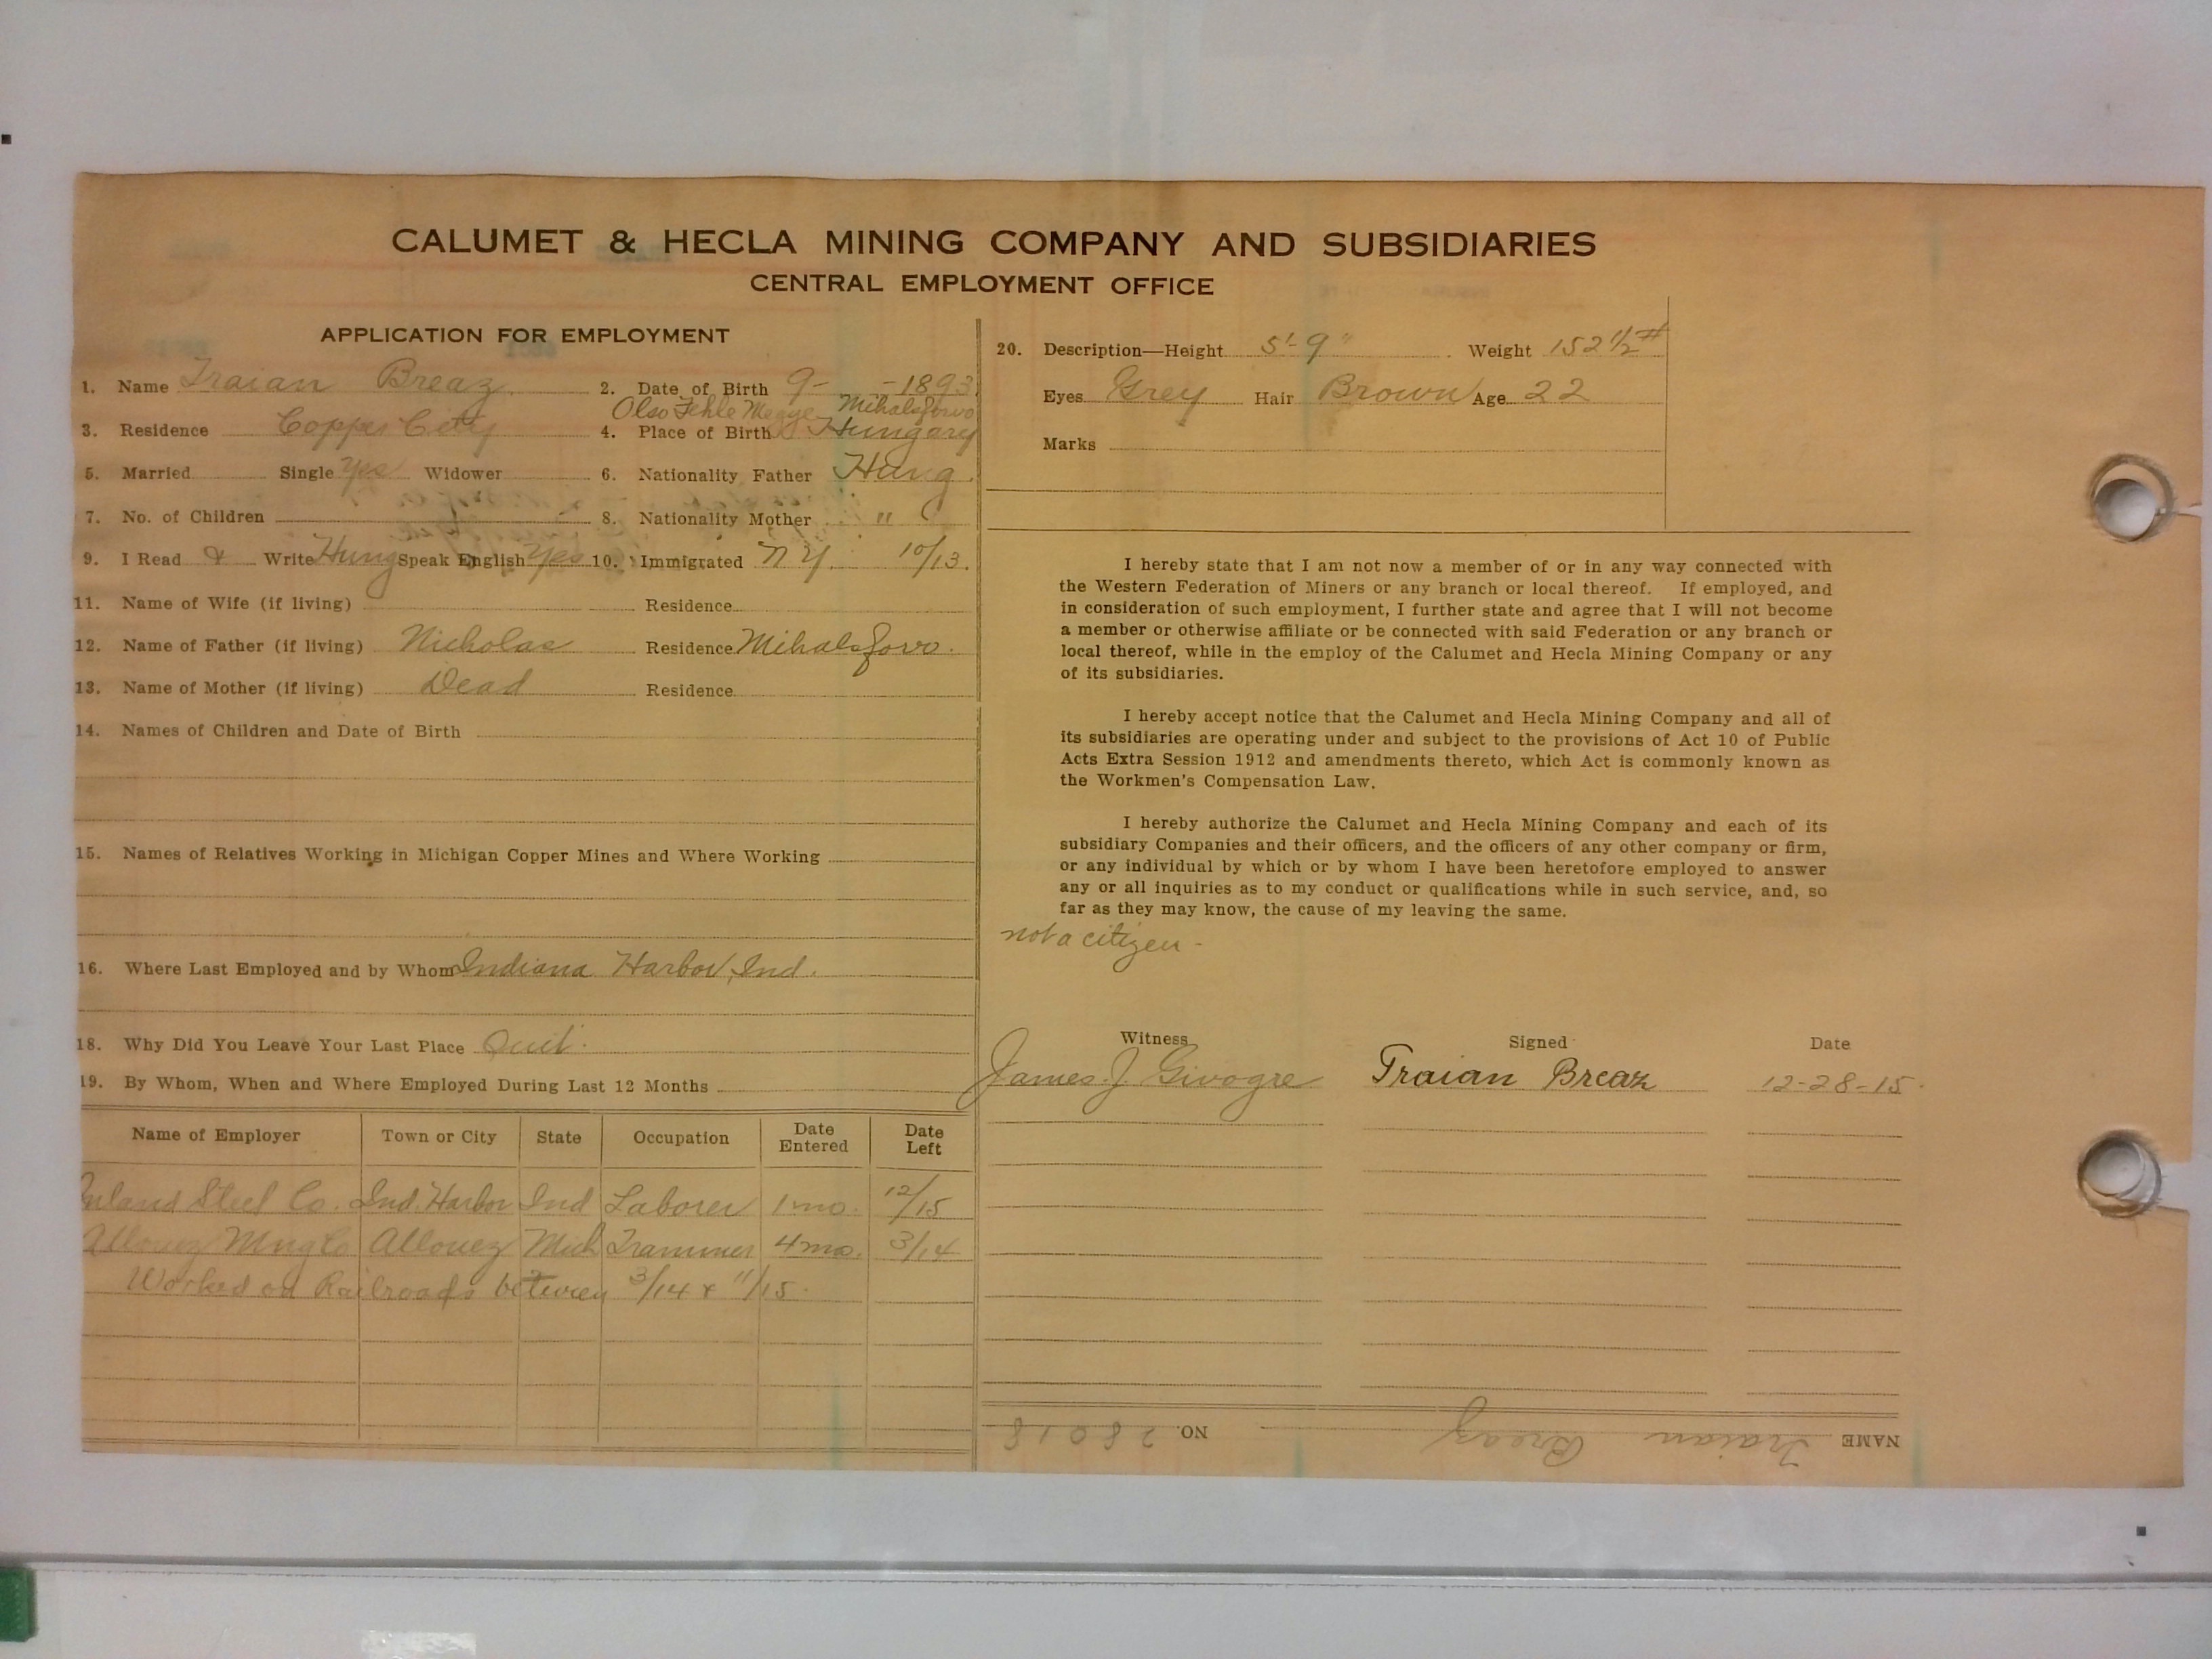 CALUMET & HECLA MINING COMPANY AND SUBSIDIARIES
CENTRAL EMPLOYMENT OFFICE
APPLICATION FOR EMPLOYMENT
1. Name Traian Breaz 2. Date of Birth 9- -1893
Mihalsfovo
3. Residence Copper City 4. Place of Birth Hungary
5. Married Single Yes Widower 6. Nationality Father Hung.
7. No. of Children 8. Nationality Mother "
9. I Read & Write Hung Speak English Yes 10. Immigrated N.Y. 10/13.
11. Name of Wife (if living) Residence
12. Name of Father (if living) Nicholas Residence Mihalsfovo.
13. Name of Mother (if living) Dead Residence
14. Names of Children and Date of Birth
15. Names of Relatives Working in Michigan Copper Mines and Where Working
16. Where Last Employed and by Whom Indiana Harbor, Ind.
18. Why Did You Leave Your Last Place Quit.
19. By Whom, When and Where Employed During Last 12 Months
Name of Employer Town or City State Occupation Date Entered Date Left
Inland Steel Co. Ind. Harbor Ind Laborer 1 mo. 12/15
Allouez Mng Co Allouez Mich Trammer 4 mo. 3/14
Worked on Railroads between 3/14 & 11/15.
20. Description—Height 5'-9" Weight 152 1/2#
Eyes Grey Hair Brown Age 22
Marks
I hereby state that I am not now a member of or in any way connected with
the Western Federation of Miners or any branch or local thereof. If employed, and
in consideration of such employment, I further state and agree that I will not become
a member or otherwise affiliate or be connected with said Federation or any branch or
local thereof, while in the employ of the Calumet and Hecla Mining Company or any
of its subsidiaries.
I hereby accept notice that the Calumet and Hecla Mining Company and all of
its subsidiaries are operating under and subject to the provisions of Act 10 of Public
Acts Extra Session 1912 and amendments thereto, which Act is commonly known as
the Workmen's Compensation Law.
I hereby authorize the Calumet and Hecla Mining Company and each of its
subsidiary Companies and their officers, and the officers of any other company or firm,
or any individual by which or by whom I have been heretofore employed to answer
any or all inquiries as to my conduct or qualifications while in such service, and, so
far as they may know, the cause of my leaving the same.
not a citizen -
Witness Signed Date
James J. Givogre Traian Breaz 12-28-15.
NAME Traian Breaz NO. 28018